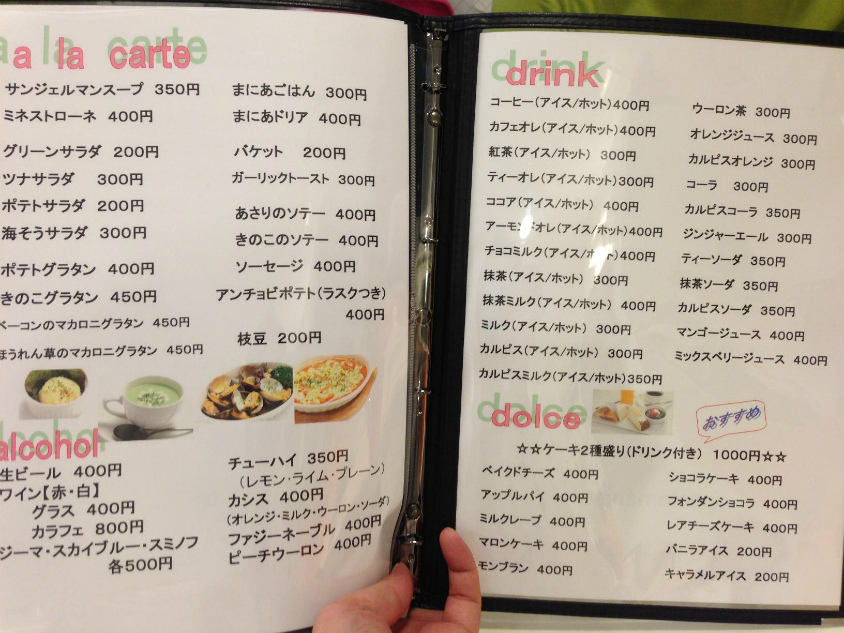 a la carte
サンジェルマンスープ 350円
ミネストローネ 400円
グリーンサラダ 200円
ツナサラダ 300円
ポテトサラダ 200円
海そうサラダ 300円
ポテトグラタン 400円
きのこグラタン 450円
ベーコンのマカロニグラタン 450円
ほうれん草のマカロニグラタン 450円
まにあごはん 300円
まにあドリア 400円
バケット 200円
ガーリックトースト 300円
あさりのソテー 400円
きのこのソテー 400円
ソーセージ 400円
アンチョビポテト(ラスクつき)
400円
枝豆 200円
alcohol
生ビール 400円
ワイン【赤・白】
グラス 400円
カラフェ 800円
ジーマ・スカイブルー・スミノフ
各500円
チューハイ 350円
(レモン・ライム・プレーン)
カシス 400円
(オレンジ・ミルク・ウーロン・ソーダ)
ファジーネーブル 400円
ピーチウーロン 400円
drink
コーヒー(アイス/ホット)400円
カフェオレ(アイス/ホット)400円
紅茶(アイス/ホット) 300円
ティーオレ(アイス/ホット)300円
ココア(アイス/ホット) 400円
アーモンドオレ(アイス/ホット)400円
チョコミルク(アイス/ホット)400円
抹茶(アイス/ホット) 300円
抹茶ミルク(アイス/ホット) 400円
ミルク(アイス/ホット) 300円
カルピス(アイス/ホット) 300円
カルピスミルク(アイス/ホット)350円
ウーロン茶 300円
オレンジジュース 300円
カルピスオレンジ 300円
コーラ 300円
カルピスコーラ 350円
ジンジャーエール 300円
ティーソーダ 350円
抹茶ソーダ 350円
カルピスソーダ 350円
マンゴージュース 400円
ミックスベリージュース 400円
dolce
おすすめ
☆☆ケーキ2種盛り(ドリンク付き) 1000円☆☆
ベイクドチーズ 400円
アップルパイ 400円
ミルクレープ 400円
マロンケーキ 400円
モンブラン 400円
ショコラケーキ 400円
フォンダンショコラ 400円
レアチーズケーキ 400円
バニラアイス 200円
キャラメルアイス 200円